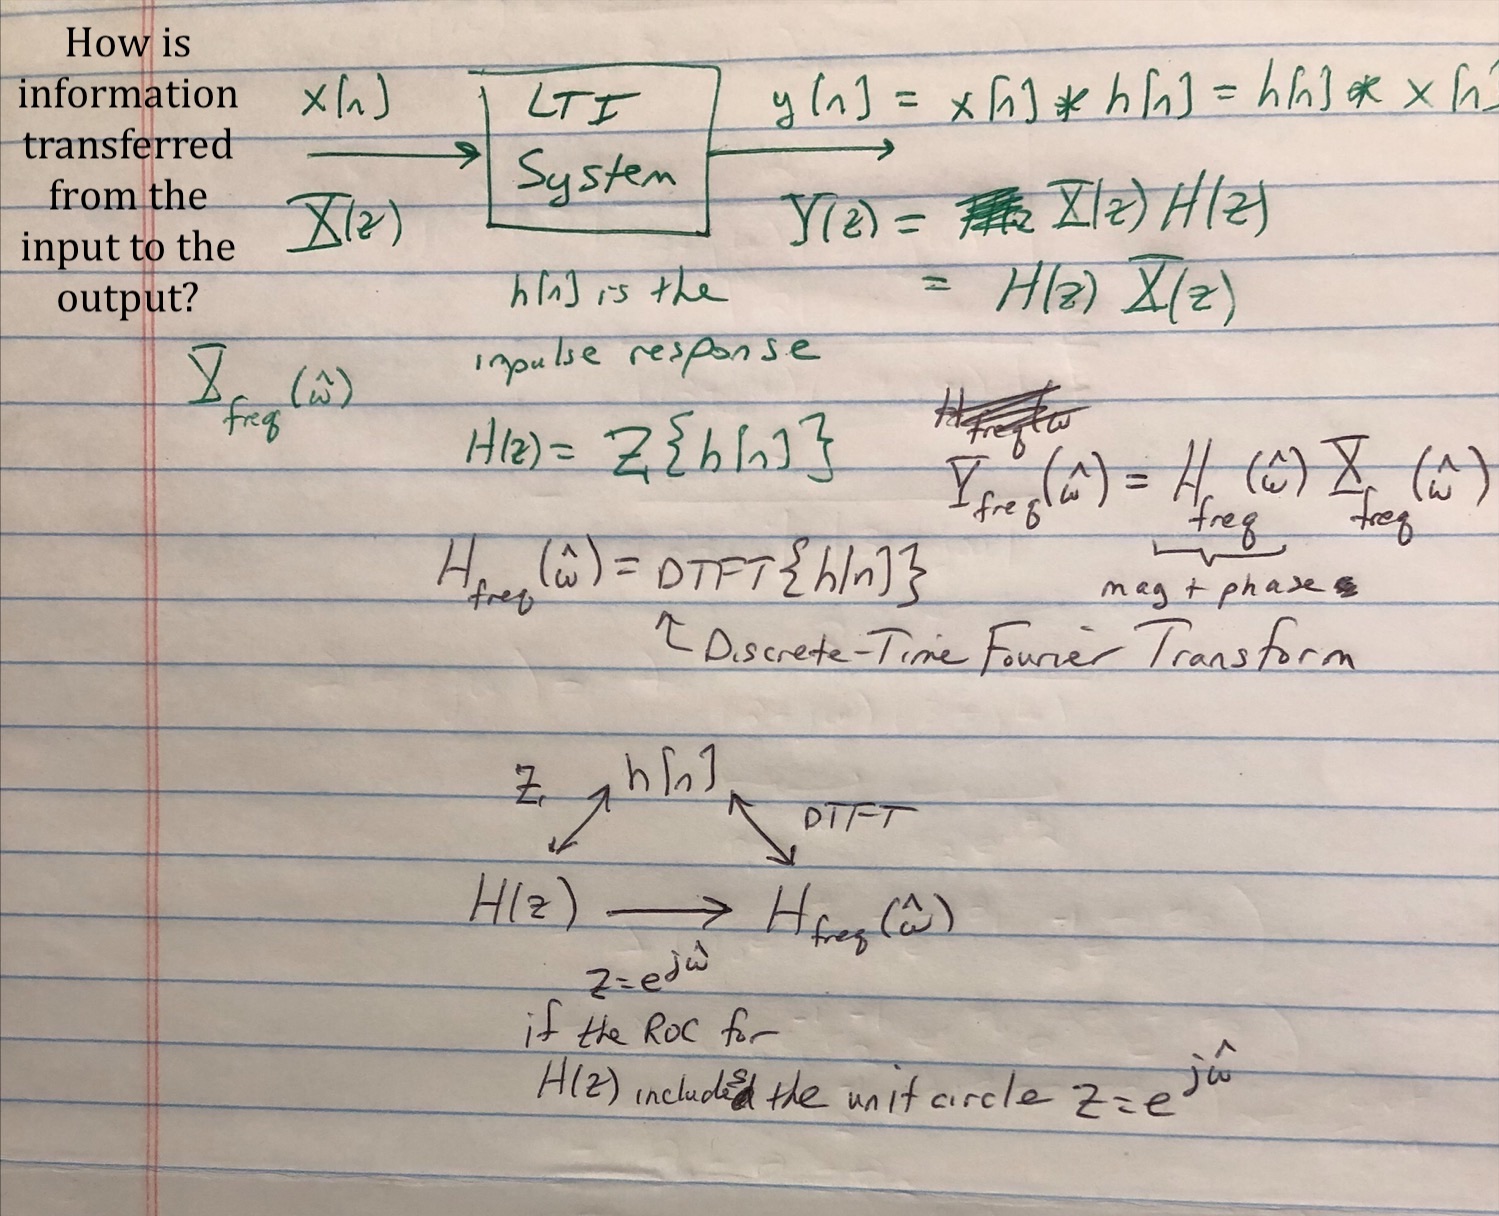 How is
information
transferred
from the
input to the
output?
x[n]
LTI
System
y[n] = x[n] * h[n] = h[n] * x[n]
X(z)
Y(z) = X(z) H(z)
= H(z) X(z)
h[n] is the
impulse response
X_freq(ω̂)
H(z) = Z{h[n]}
Y_freq(ω̂) = H_freq(ω̂) X_freq(ω̂)
mag + phase
H_freq(ω̂) = DTFT{h[n]}
↖ Discrete-Time Fourier Transform
Z h[n]
DTFT
H(z) → H_freq(ω̂)
z=e^jω̂
if the ROC for
H(z) includes the unit circle z=e^jω̂